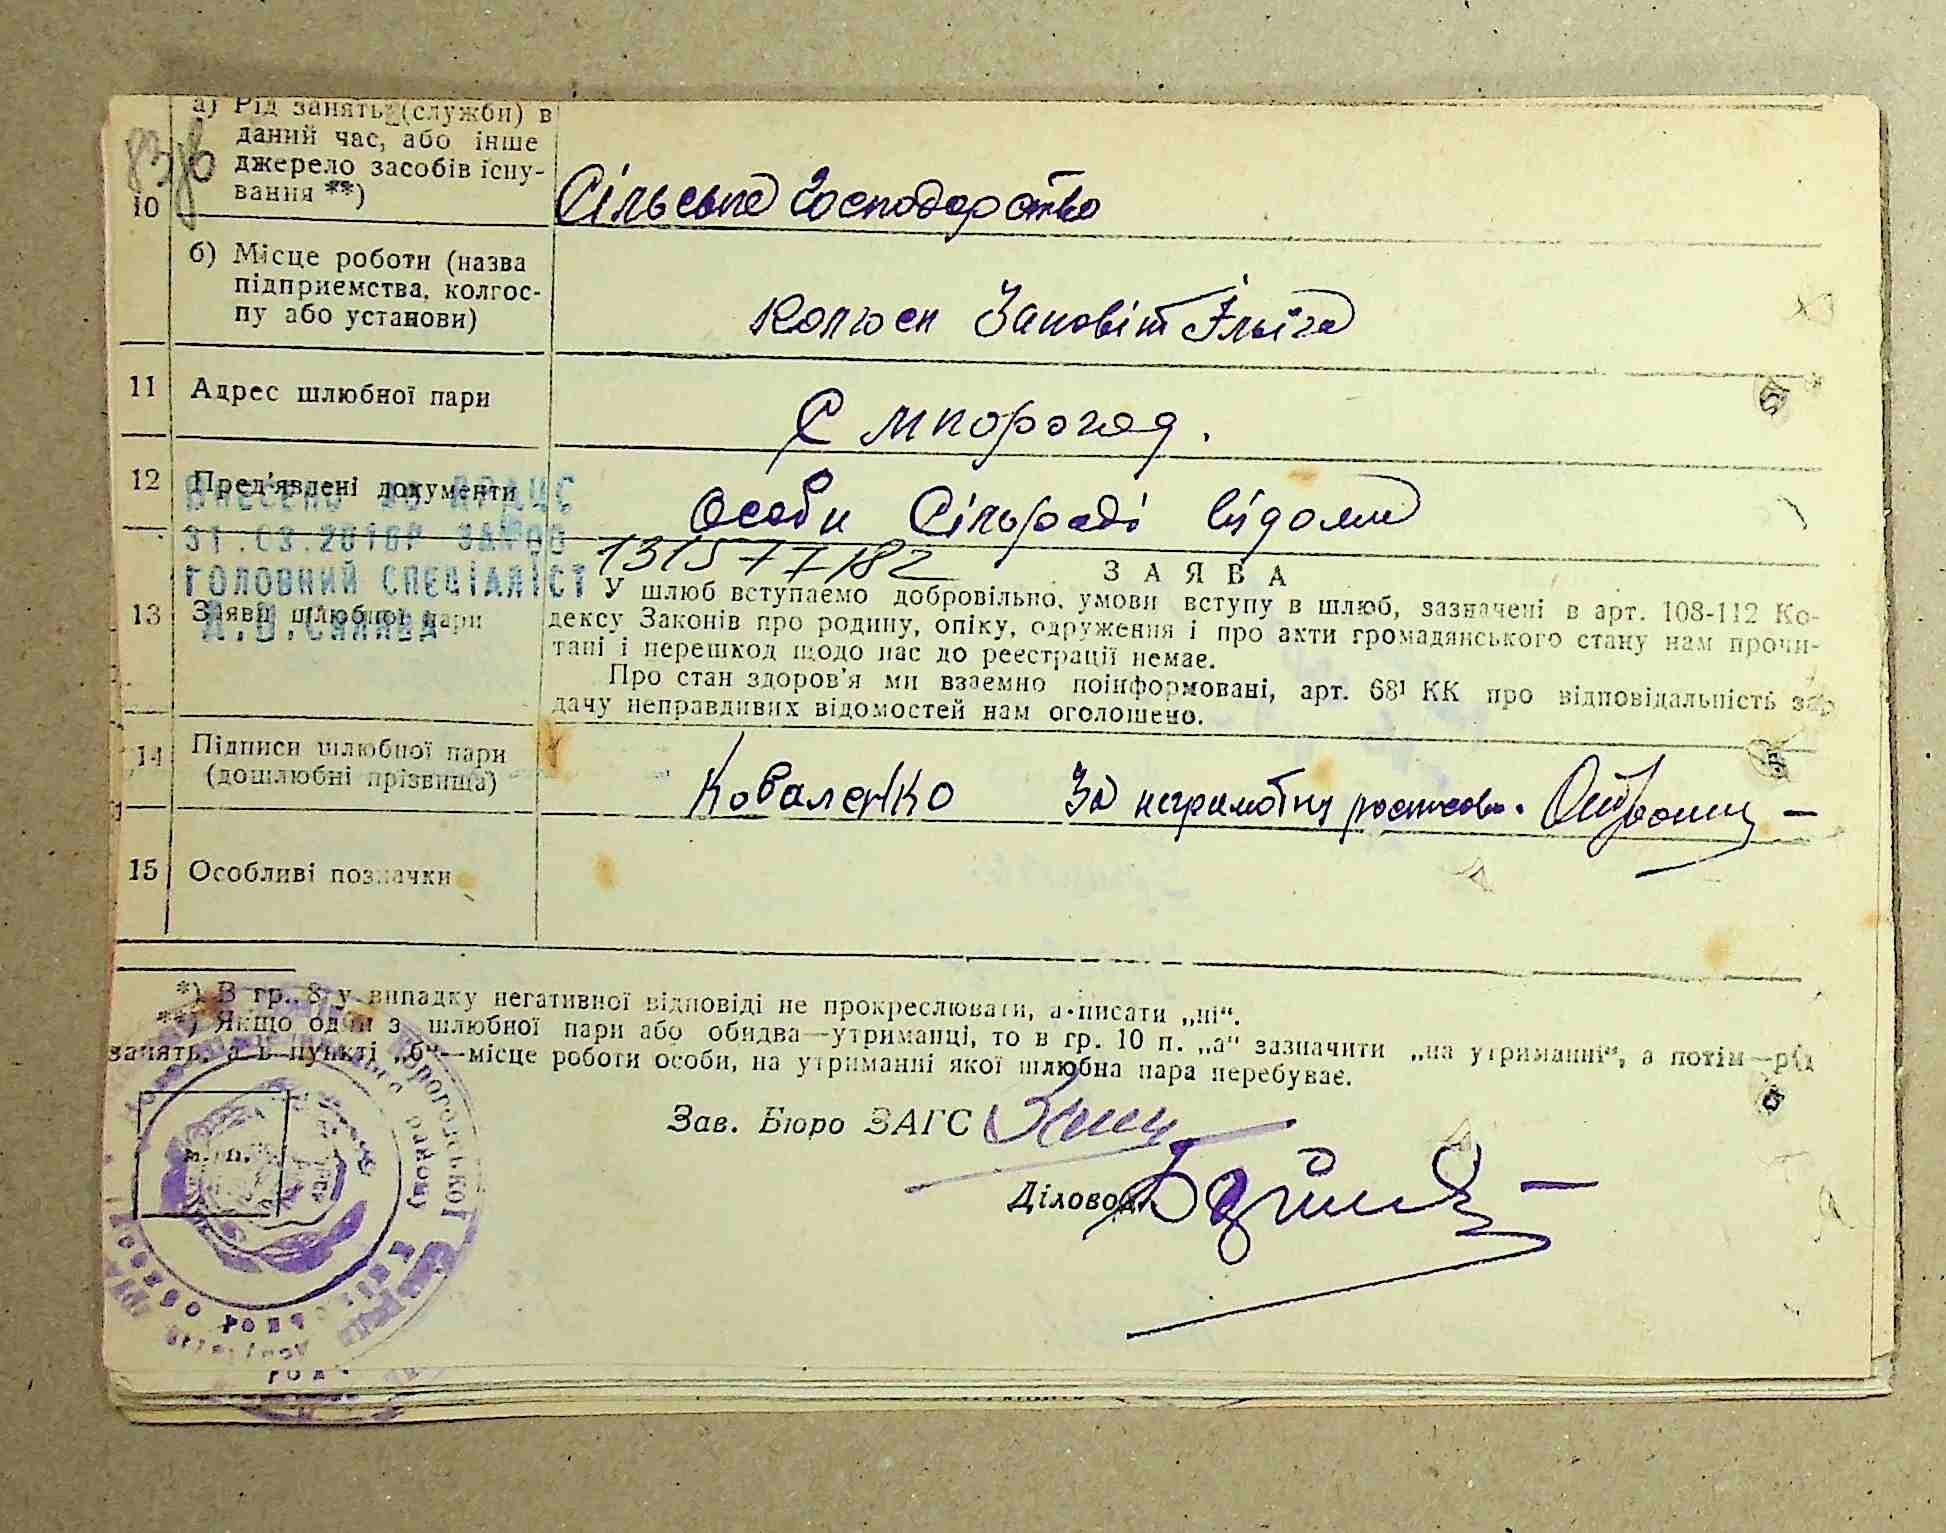 а) Рід занять (служби) в
даний час, або інше
джерело засобів існу-
вання **)
10
Сільське господарство
б) Місце роботи (назва
підприємства, колгос-
пу або установи)
колгосп Заповіт Ілліча
11 Адрес шлюбної пари
С Миорогод.
12 Пред'явлені документи
Особи Сільраді відомі
ВНЕСЕНО ДО ДРАЦС
31.03.2010Р ЗА №00
131577182
ГОЛОВНИЙ СПЕЦІАЛІСТ
З А Я В А
13 Заяви шлюбної пари
У шлюб вступаємо добровільно, умови вступу в шлюб, зазначені в арт. 108-112 Ко-
дексу Законів про родину, опіку, одруження і про акти громадянського стану нам прочи-
тані і перешкод щодо нас до реєстрації немає.
Про стан здоров'я ми взаємно поінформовані, арт. 68¹ КК про відповідальність за
дачу неправдивих відомостей нам оголошено.
14 Підписи шлюбної пари
(дошлюбні прізвища)
Коваленко За неграмотну
15 Особливі позначки
*) В гр. 8 у випадку негативної відповіді не прокреслювати, а писати „ні“.
**) Якщо один з шлюбної пари або обидва—утриманці, то в гр. 10 п. „а“ зазначити „на утриманні“, а потім—рід
занять, а в пункті „б“—місце роботи особи, на утриманні якої шлюбна пара перебуває.
Зав. Бюро ЗАГС
м. п.
Діловод